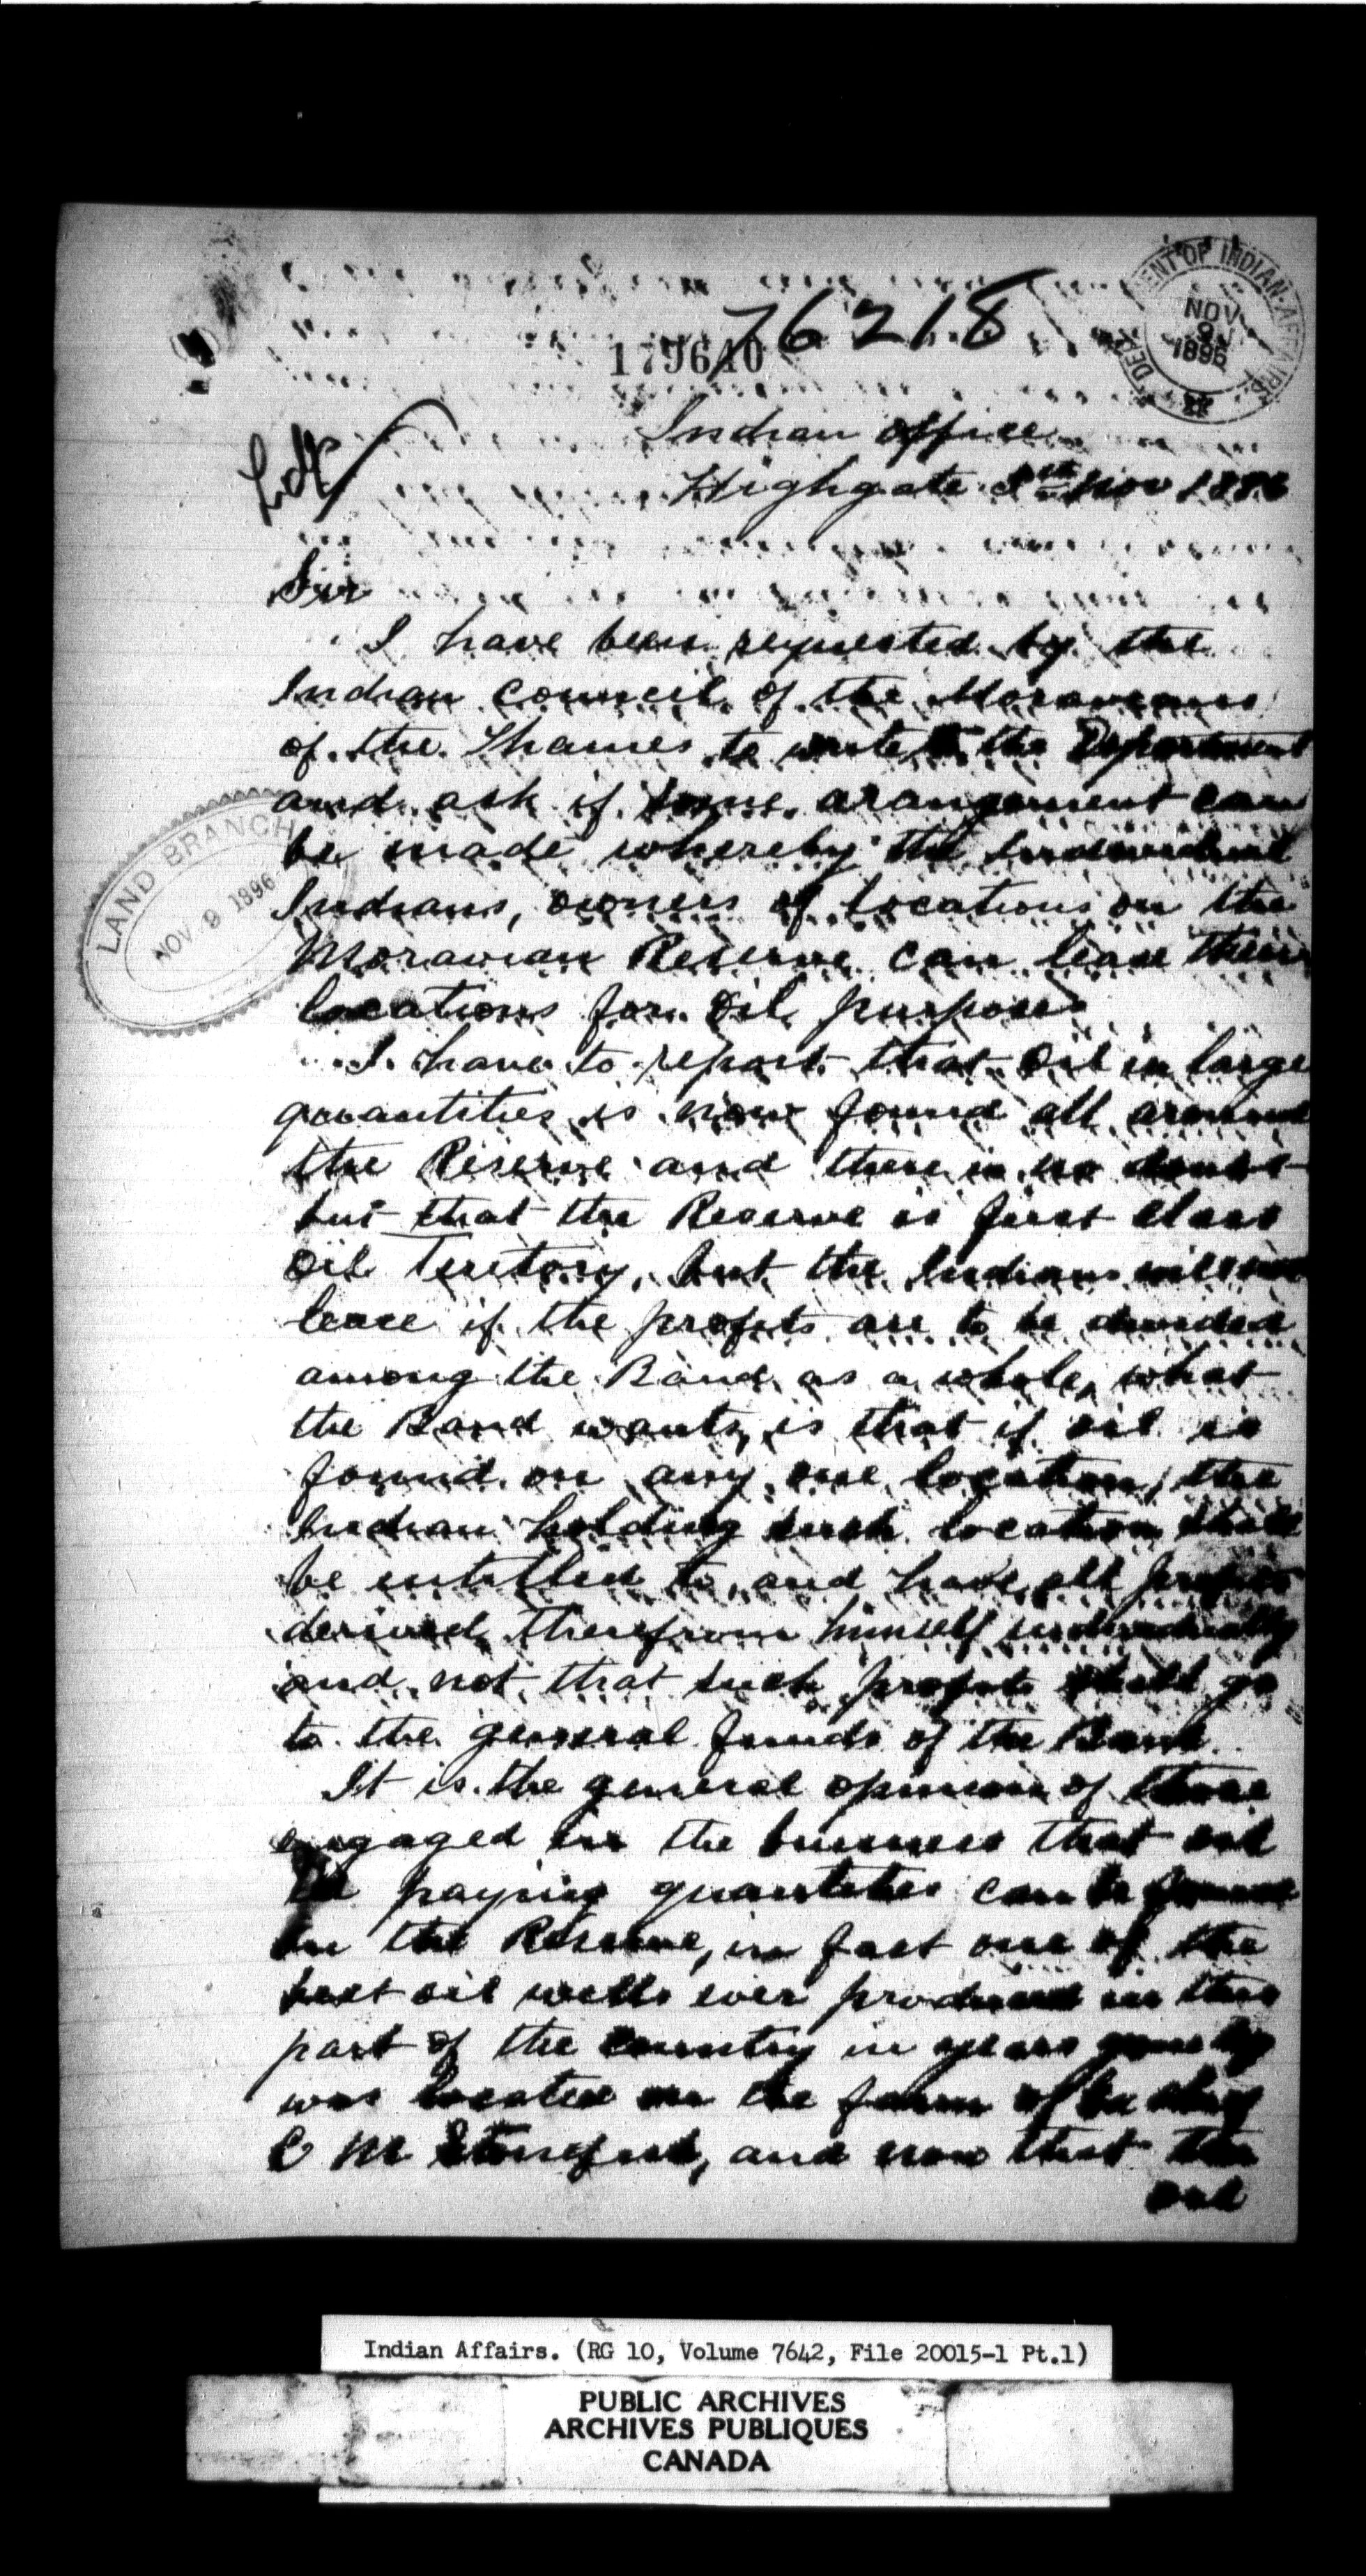 76218
179640
DEPT. OF INDIAN AFFAIRS
NOV 9 1896
Indian Office
Highgate 8th Nov 1896
Sir
I have been requested by the
Indian council of the Moravians
of the Thames to write to the Department
and ask if some arangement can
be made whereby the Individual
Indians, owners of locations on the
Moravian Reserve can lease their
locations for Oil purposes
LAND BRANCH
NOV. 9 1896
I have to report that Oil in large
quantities is now found all around
the Reserve and there is no doubt
but that the Reserve is first class
Oil Teritory, but the Indians will not
lease if the profits are to be divided
among the Band as a whole, what
the Band wants, is that if oil is
found on any one location, the
Indian holding such location shall
be entitled to, and have all profits
derived therefrom himself individually
and not that such profits shall go
to the general funds of the Band.
It is the general opinion of those
engaged in the business that oil
in paying quantities can be found
on the Reserve, in fact one of the
best oil wells ever produced in this
part of the country in years gone by
was located on the farm of
C M Stonefish, and now that the
oil
Indian Affairs. (RG 10, Volume 7642, File 20015-1 Pt.1)
PUBLIC ARCHIVES
ARCHIVES PUBLIQUES
CANADA